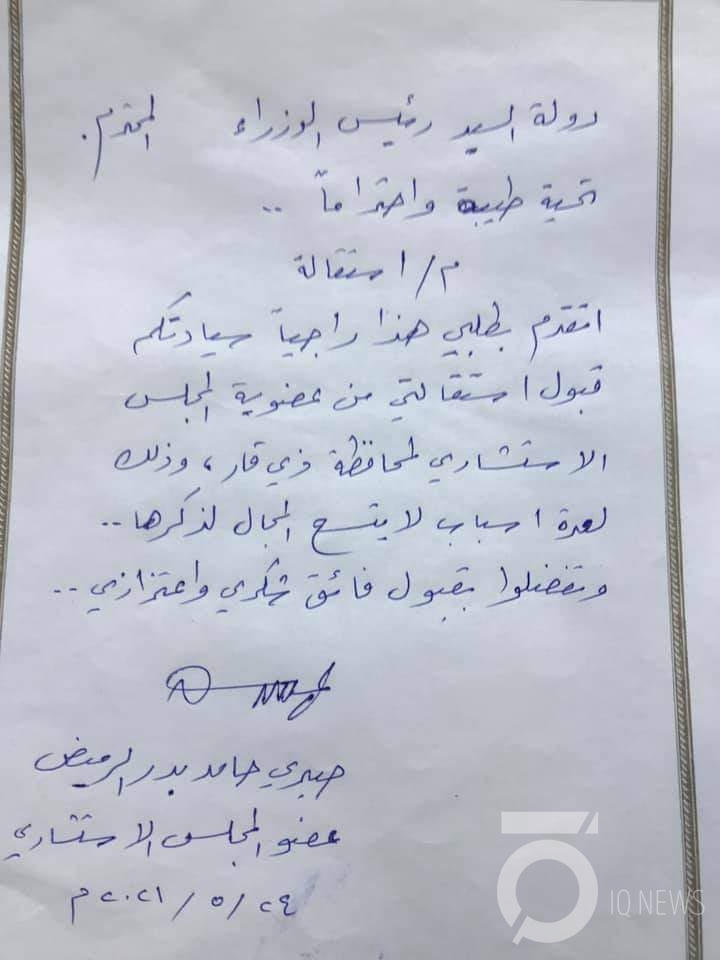 دولة السيد رئيس الوزراء المحترم.
تحية طيبة واحتراماً ..
م/ استقالة
اتقدم بطلبي هذا راجياً سيادتكم
قبول استقالتي من عضوية المجلس
الاستشاري لمحافظة ذي قار، وذلك
لعدة اسباب لا يتسع المجال لذكرها..
وتفضلوا بقبول فائق شكري واعتزازي..
صبري حامد بدر الرميض
عضو المجلس الاستشاري
٢٤ / ٥ / ٢٠٢١ م
IQ NEWS